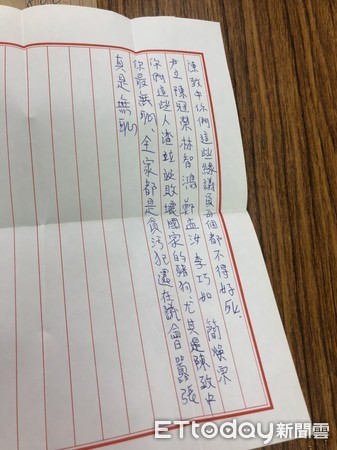 陳致中你們這些綠議員每個都不得好死.
尹立 陳冠榮 林智鴻 鄭孟洳 李巧如 簡煥宗
你們這些人渣垃圾敗壞國家的豬狗,尤其是陳致中
你最無恥、全家都是貪污犯還在議會囂張
真是無恥
ETtoday新聞雲